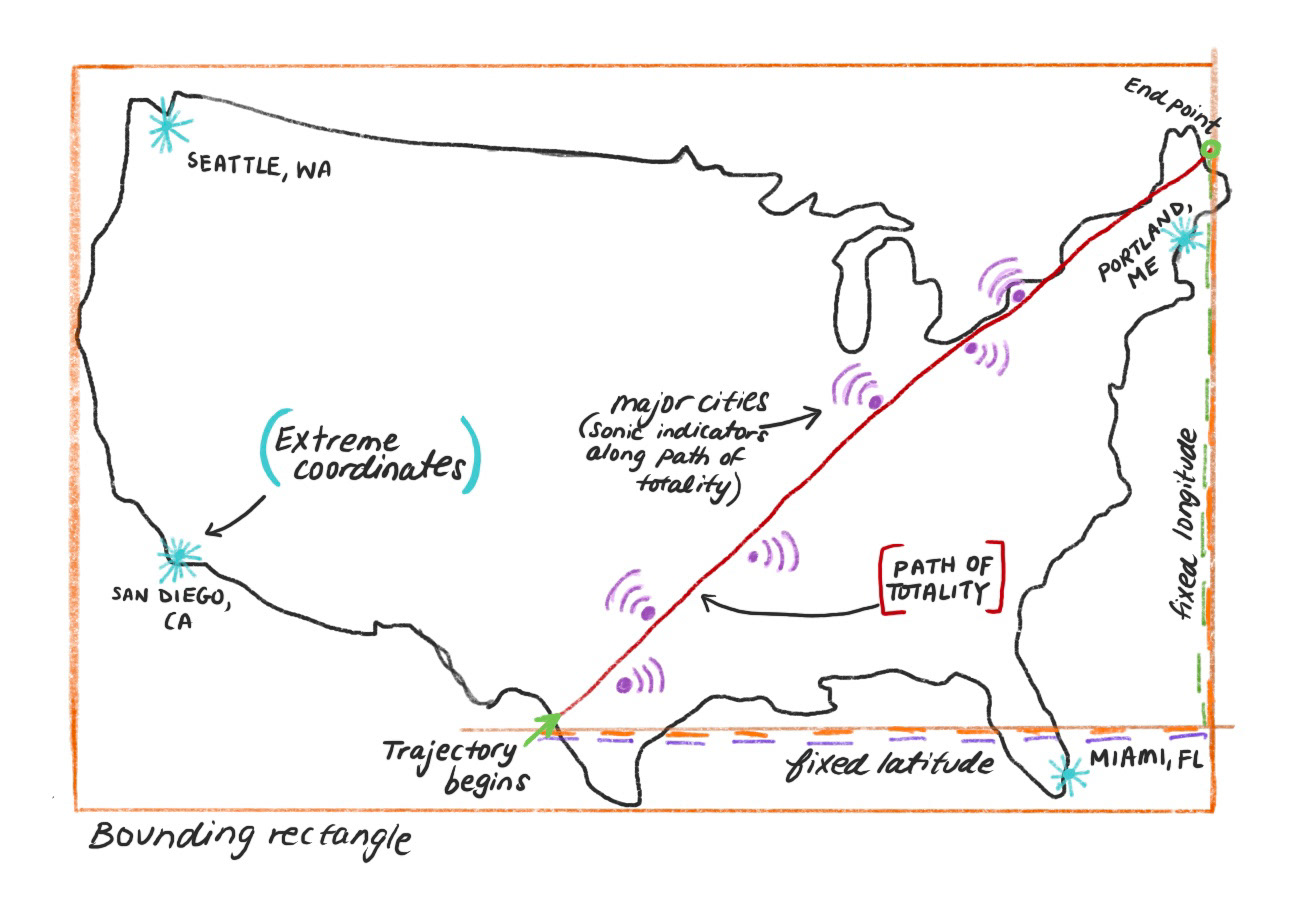 End point
SEATTLE, WA
PORTLAND,
ME
major cities
(sonic indicators
along path of
totality)
(Extreme
coordinates)
fixed longitude
[PATH OF
TOTALITY]
SAN DIEGO,
CA
Trajectory
begins
fixed latitude
MIAMI, FL
Bounding rectangle